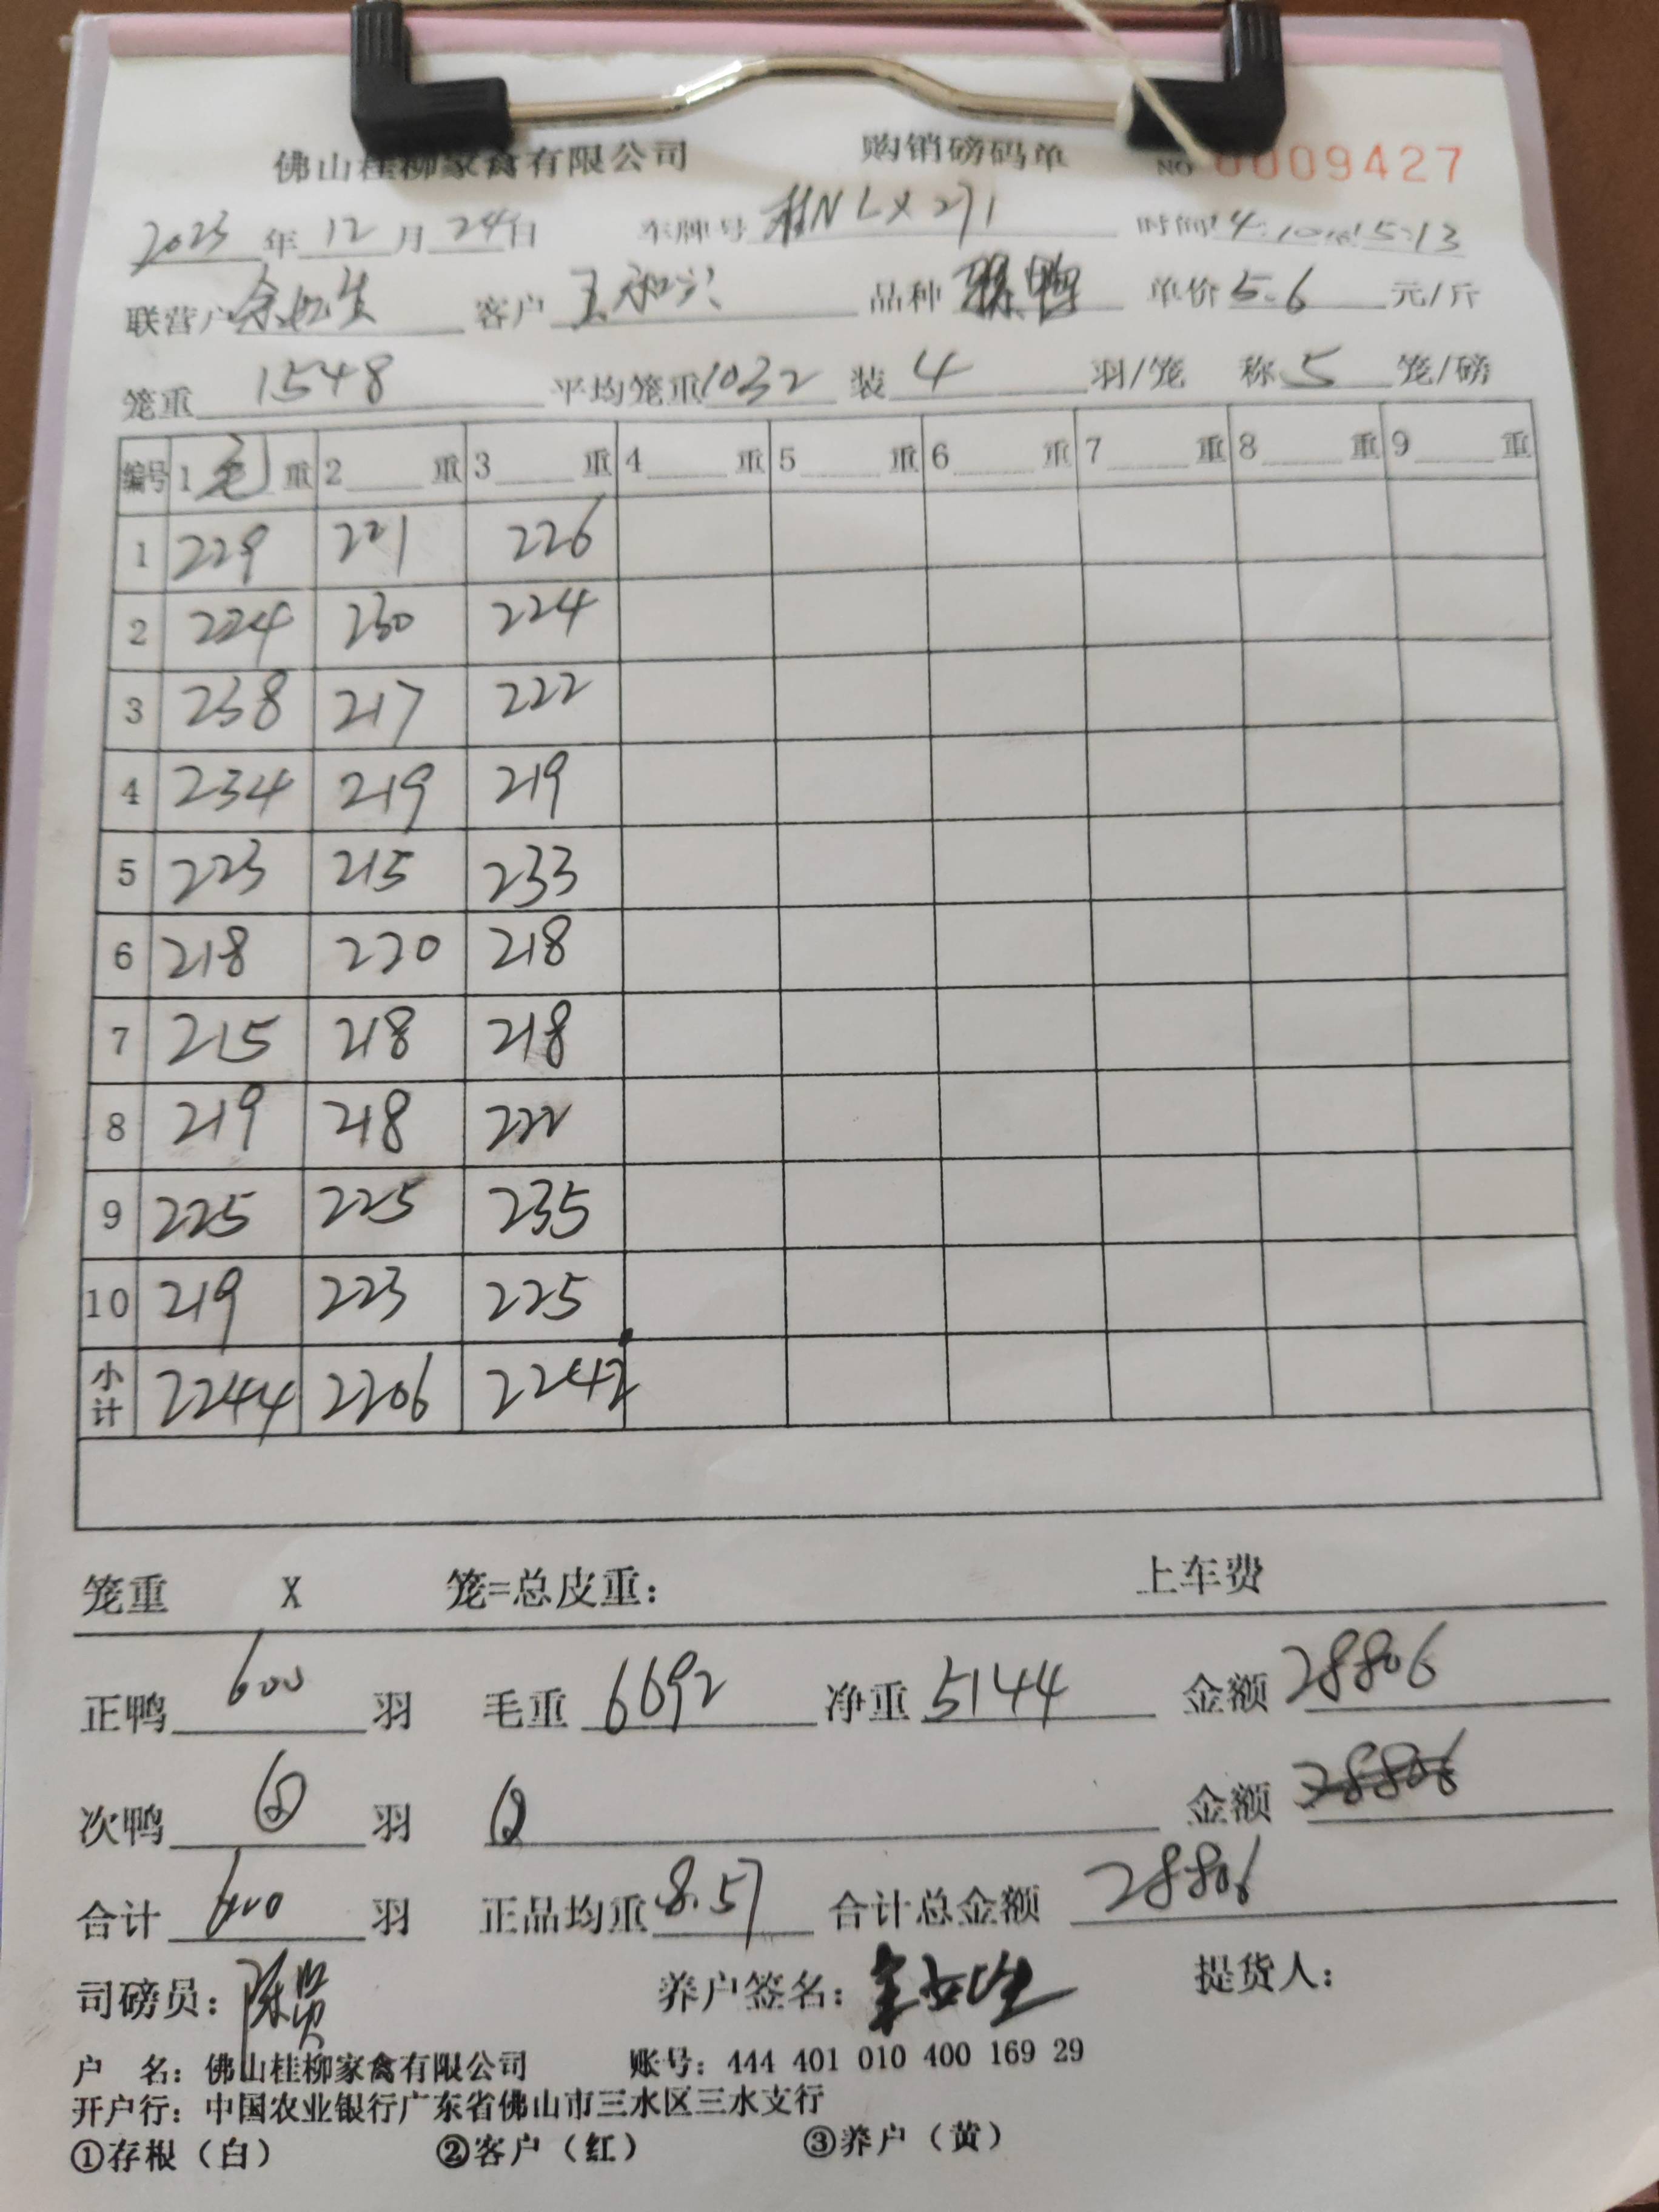 佛山桂柳家禽有限公司 购销磅码单 NO 0009427
2023年12月24日 车牌号 桂N LX271 时间14:10 15:13
联营户 客户 王和兴 品种 单价5.6元/斤
笼重1548 平均笼重1032 装4羽/笼 称5笼/磅
编号 1毛重 2重 3重 4重 5重 6重 7重 8重 9重
1 229 221 226
2 224 230 224
3 238 217 222
4 234 219 219
5 223 215 233
6 218 220 218
7 215 218 218
8 219 218 222
9 225 225 235
10 219 223 225
小计 2244 2206 2242
笼重 X 笼=总皮重： 上车费
正鸭600羽 毛重6692 净重5144 金额28806
次鸭羽 金额28806
合计600羽 正品均重8.57 合计总金额28806
司磅员： 养户签名： 提货人：
户 名：佛山桂柳家禽有限公司 账号：444 401 010 400 169 29
开户行：中国农业银行广东省佛山市三水区三水支行
①存根（白） ②客户（红） ③养户（黄）